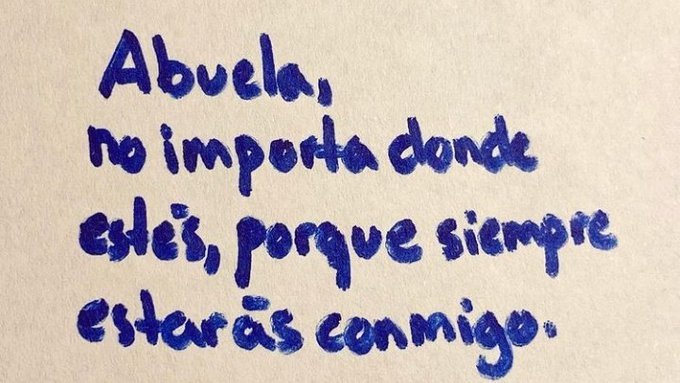 Abuela,
no importa donde
estés, porque siempre
estarás conmigo.